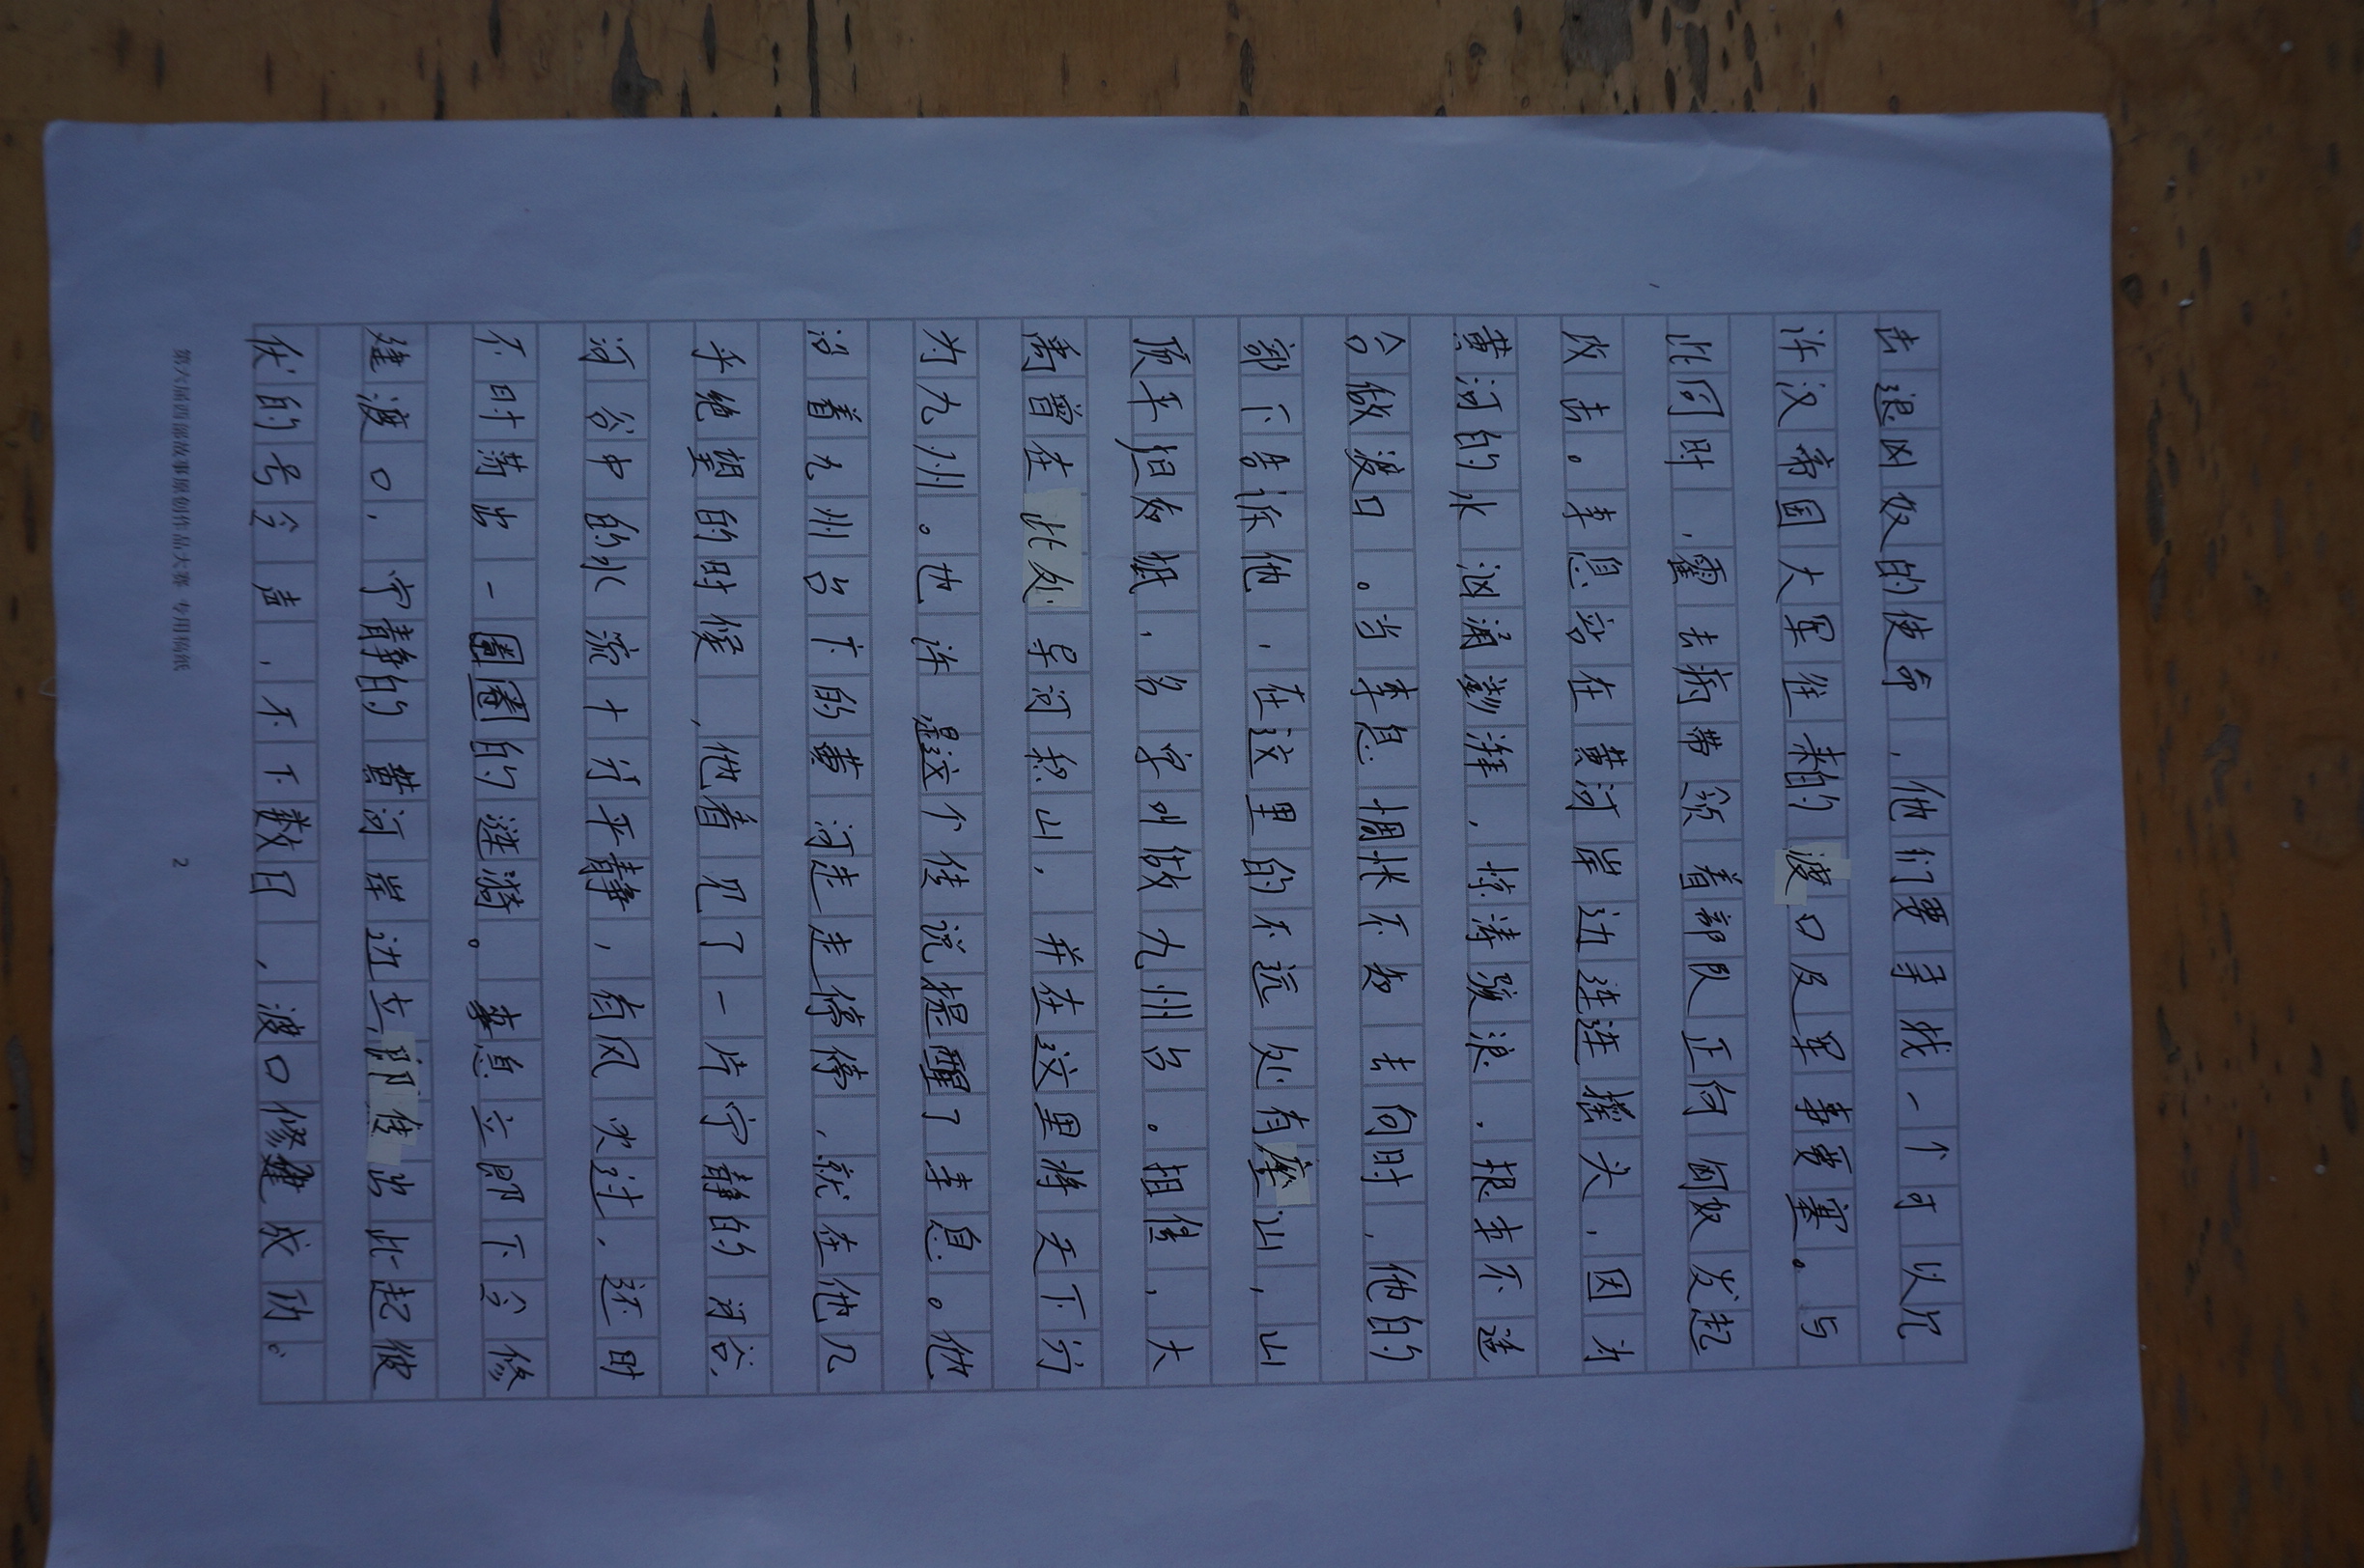 去退凶奴的使命，他们要寻找一个可以允
许汉帝国大军往来的渡口及军事要塞。与
此同时，霍去病带领着部队正向匈奴发起
改去。李息站在黄河岸边连连摇头，因为
黄河的水汹涌澎湃，惊涛骇浪，根本不适
合做渡口。当李息惆怅不知去向时，他的
部下告诉他，在这里的不远处有座山，山
顶平坦如砥，名字叫做九州台。相传，大
禹曾在此处导河积山，并在这里将天下分
为九州。也许是这个传说提醒了李息。他
沿着九州台下的黄河走走停停，就在他几
乎绝望的时候，他看见了一片宁静的河谷，
河谷中的水流十分平静，有风吹过，还时
不时荡出一圈圈的涟漪。李息立即下令修
建渡口，宁静的黄河岸边立即传出此起彼
伏的号令声，不下数日，渡口修建成功。
第六届西部故事原创作品大赛 专用稿纸
2